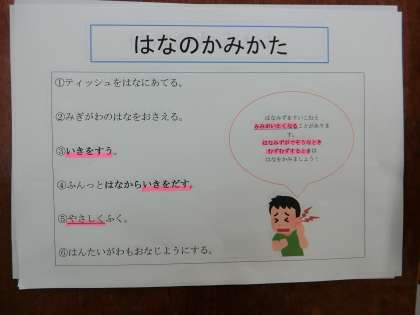 はなのかみかた
①ティッシュをはなにあてる。
②みぎがわのはなをおさえる。
③いきをすう。
④ふんっとはなからいきをだす。
⑤やさしくふく。
⑥はんたいがわもおなじようにする。
はなみずをすいこむと
みみがいたくなることがありま
す。
はなみずがでそうなとき
むずむずするときは
はなをかみましょう！